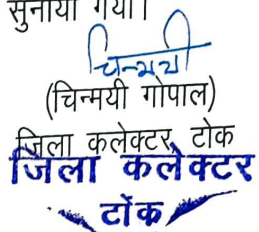 सुनाया गया।
चिन्मयी
(चिन्मयी गोपाल)
जिला कलेक्टर, टोंक
जिला कलेक्टर
टोंक